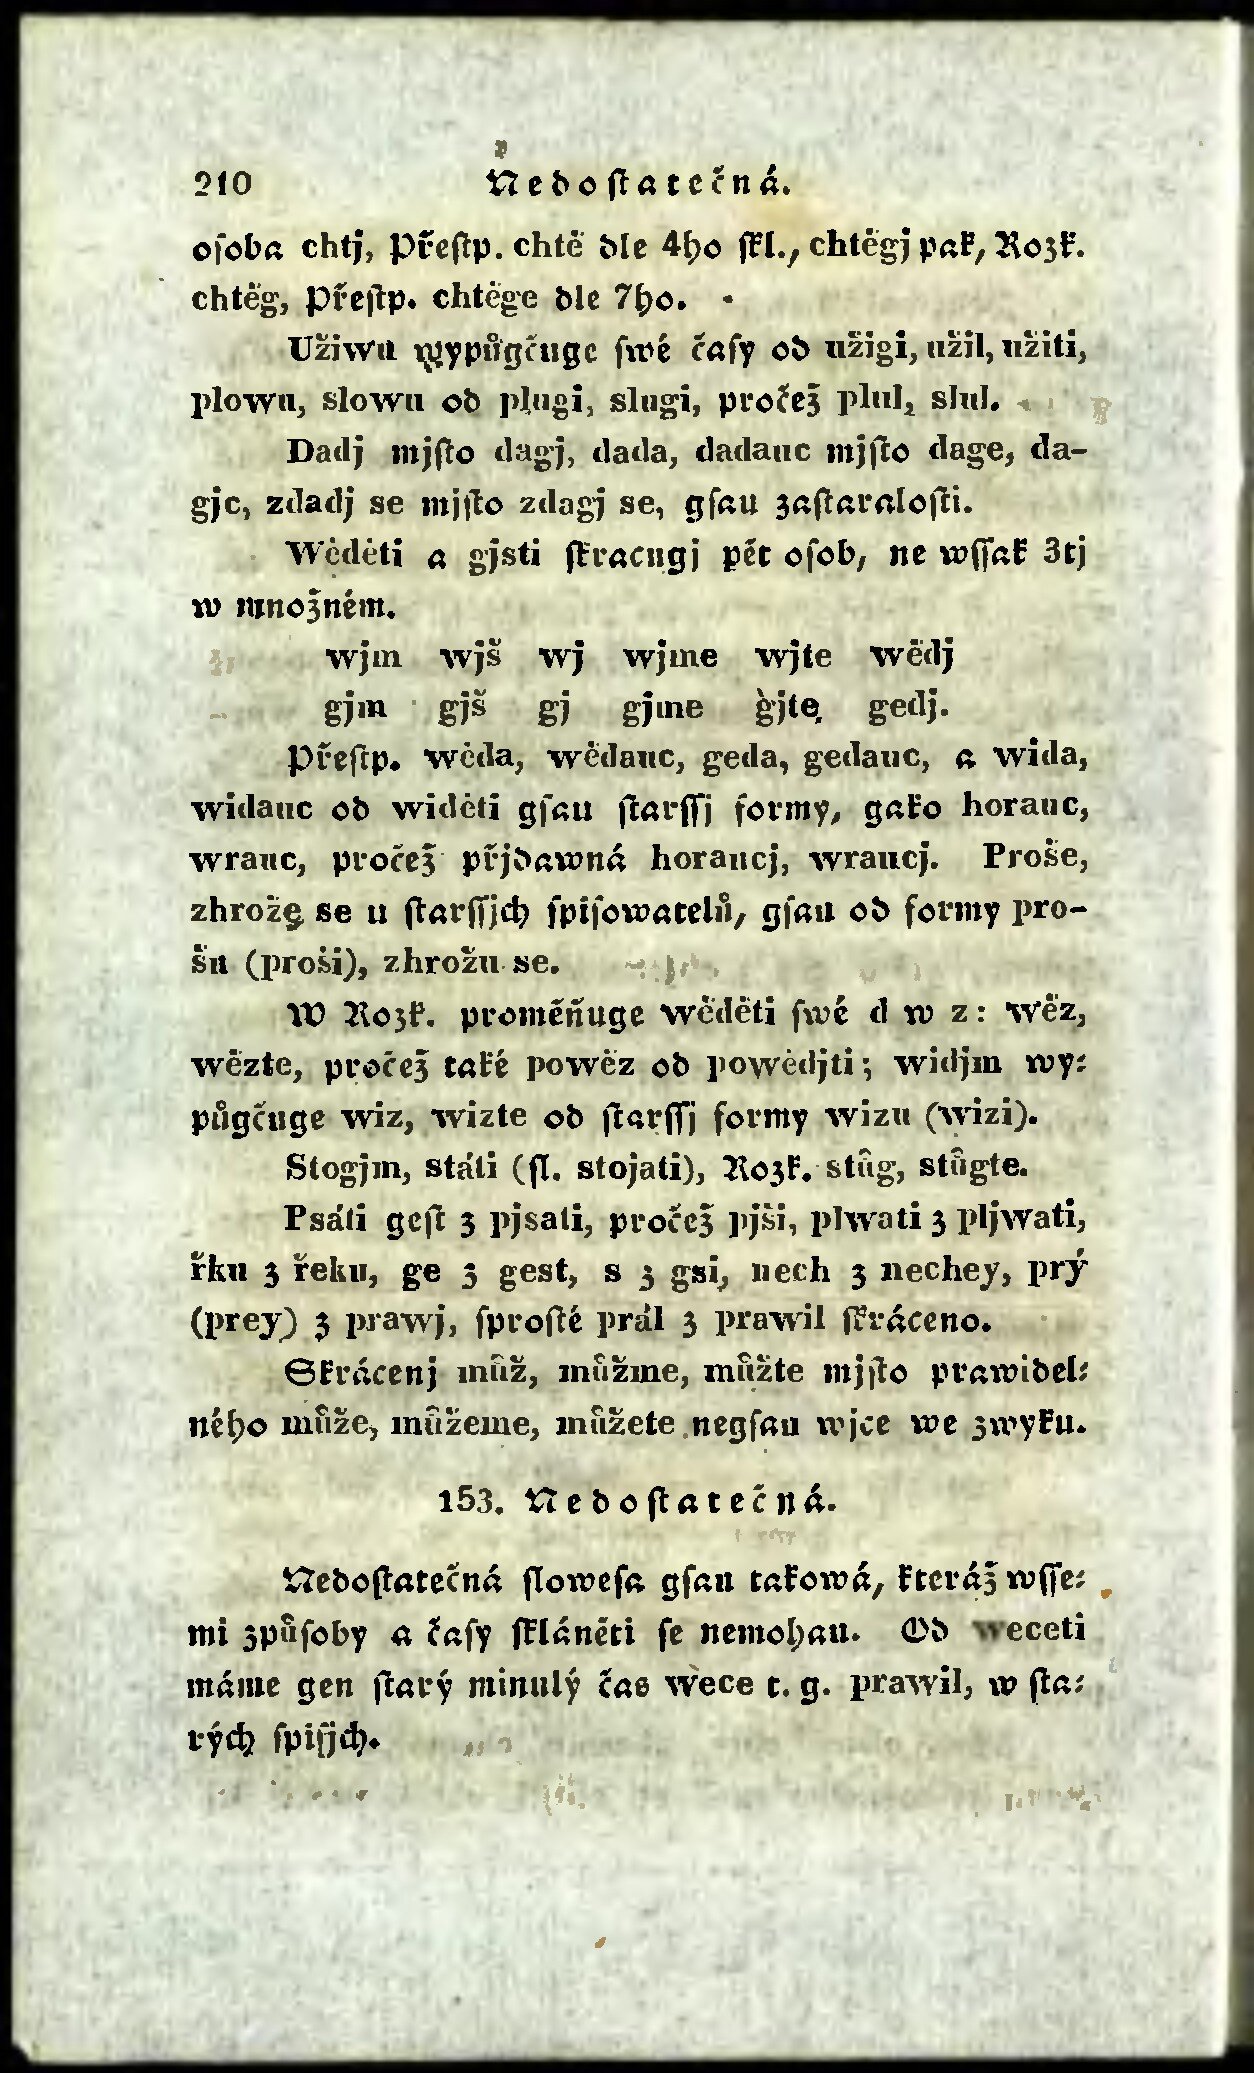 210 Nedostatečná.
osoba chtj, Přestp. chtě dle 4ho skl., chtěgj pak, Rozk.
chtěg, Přestp. chtěge dle 7ho.
Užiwu wypůgčuge swé časy od užigi, užil, užiti,
plowu, slowu od plugi, slugi, pročež plul, slul.
Dadj mjsto dagj, dada, dadauc mjsto dage, da-
gjc, zdadj se mjsto zdagj se, gsau zastaralosti.
Wěděti a gjsti skracugj pět osob, ne wssak 3tj
w množném.
wjm wjš wj wjme wjte wědj
gjm gjš gj gjme gjte gedj.
Přestp. wěda, wědauc, geda, gedauc, a wida,
widauc od widěti gsau starssj formy, gako horauc,
wrauc, pročež přjdawná horaucj, wraucj. Proše,
zhrože se u starssjch spisowatelů, gsau od formy pro-
šu (proši), zhrožu se.
W Rozk. proměňuge wěděti swé d w z: wěz,
wězte, pročež také powěz od powědjti; widjm wy-
půgčuge wiz, wizte od starssj formy wizu (wizi).
Stogjm, státi (sl. stojati), Rozk. stůg, stůgte.
Psáti gest z pjsati, pročež pjši, plwati z pljwati,
řku z řeku, ge z gest, s z gsi, nech z nechey, prý
(prey) z prawj, sprosté prál z prawil skráceno.
Skrácenj můž, můžme, můžte mjsto prawidel-
ného může, můžeme, můžete negsau wjce we zwyku.
153. Nedostatečná.
Nedostatečná slowesa gsau takowá, kteráž wsse-
mi způsoby a časy skláněti se nemohau. Od weceti
máme gen starý minulý čas wece t. g. prawil, w sta-
rých spisjch.